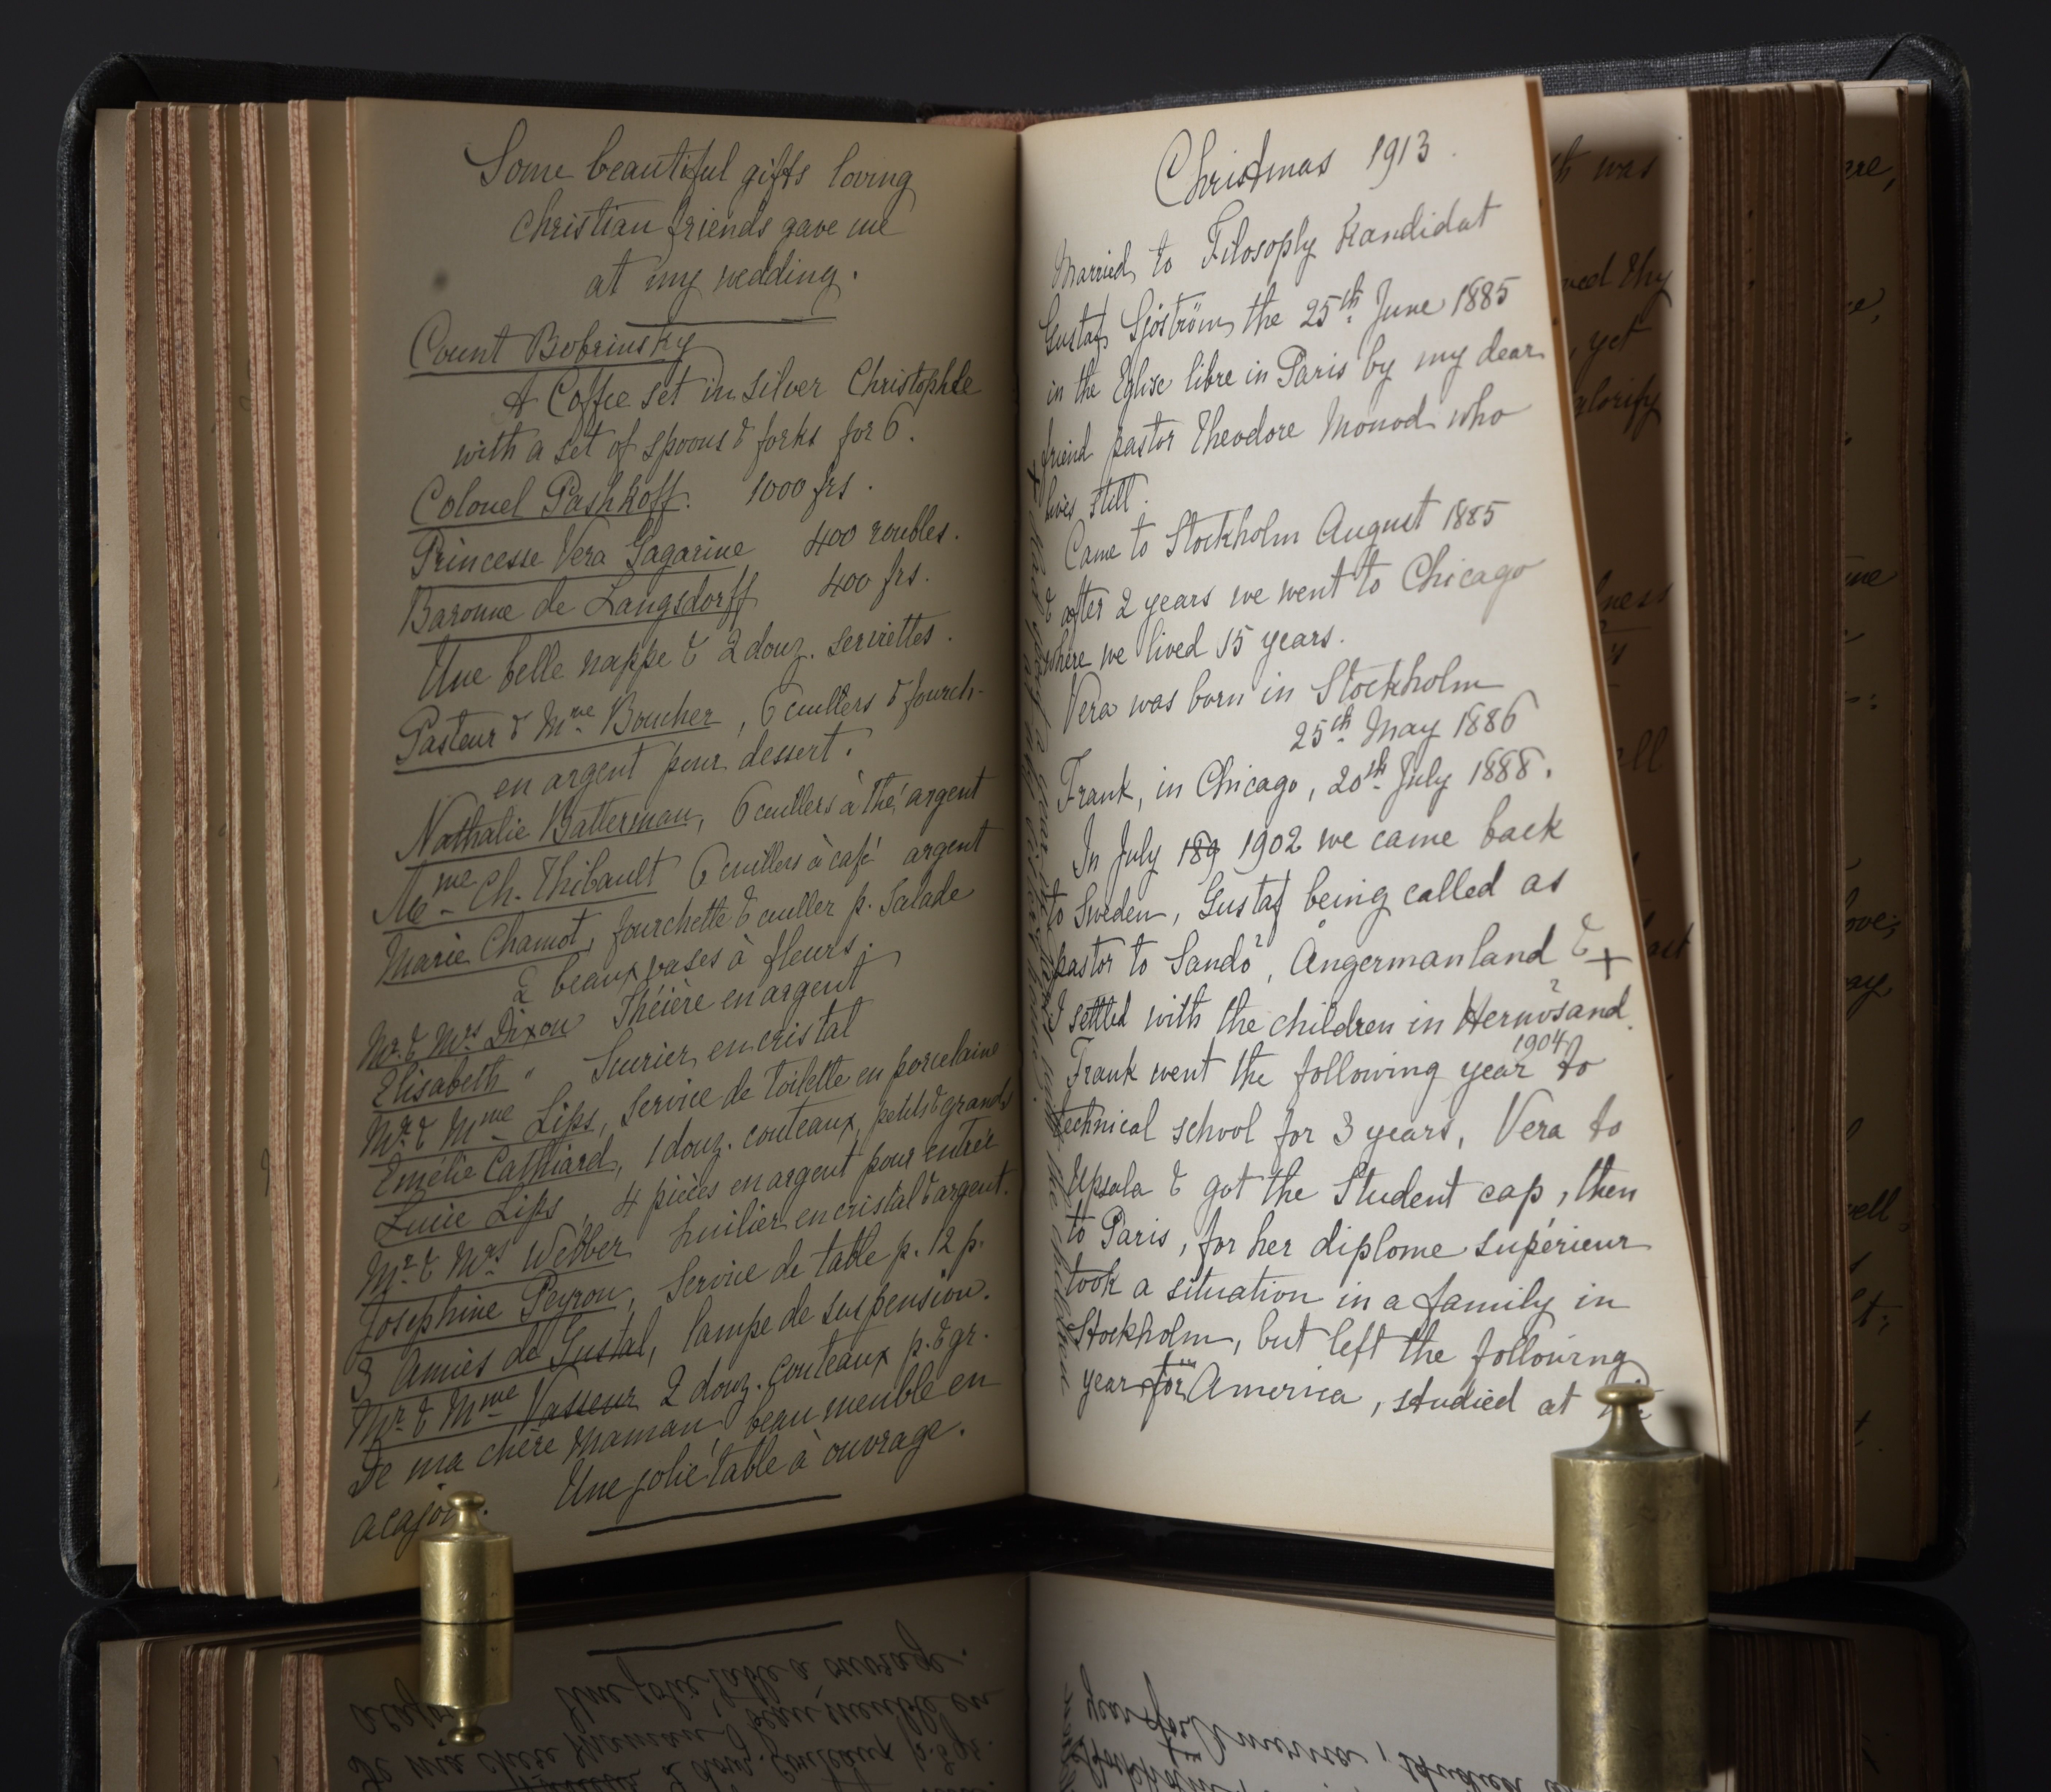 Some beautiful gifts loving
Christian friends gave me
at my wedding.
Count Bobrinsky
A Coffee set in silver Christophle
with a set of spoons & forks for 6.
Colonel Pashkoff. 1000 frs.
Princesse Vera Gagarine 400 roubles.
Baronne de Langsdorff 400 frs.
Une belle nappe & 2 douz. serviettes.
Pasteur & Mme Boucher, 6 cuillers & fourch-
en argent pour dessert.
Nathalie Batterman, 6 cuillers à thé argent
Me me Ch. Thibault 6 cuillers à café argent
Marie Chamot, fourchette & cuiller p. Salade
2 beaux vases à fleurs.
Mr. & Mrs. Dixon Théière en argent
Elisabeth " Sucrier en cristal
Mr. & Mme Lips, Service de toilette en porcelaine
Emélie Cathiard, 1 douz. couteaux, petits & grands
Lucie Lips, 4 pièces en argent pour entrée
Mr. & Mrs Webber huilier en cristal & argent.
Josephine Peyron, Service de table p. 12 p.
3 Amies de Gustaf, lampe de suspension.
Mr. & Mme Vasseur 2 douz. couteaux p. & gr.
De ma chère Maman, beau meuble en
acajou. Une jolie table à ouvrage.
Christmas 1913.
Married to Filosofly Kandidat
Gustaf Sjöström the 25th June 1885
in the Eglise libre in Paris by my dear
friend pastor Theodore Monod who
lives still.
Came to Stockholm August 1885
& after 2 years we went to Chicago
where we lived 15 years.
Vera was born in Stockholm
25th May 1886
Frank, in Chicago, 20th July 1888.
In July 189 1902 we came back
to Sweden, Gustaf being called as
pastor to Sandö, Ångermanland & +
I settled with the children in Hernösand.
Frank went the following year 1904 to
technical school for 3 years, Vera to
Upsala & got the Student cap, then
to Paris, for her diplome supérieur
took a situation in a family in
Stockholm, but left the following
year for America, studied at